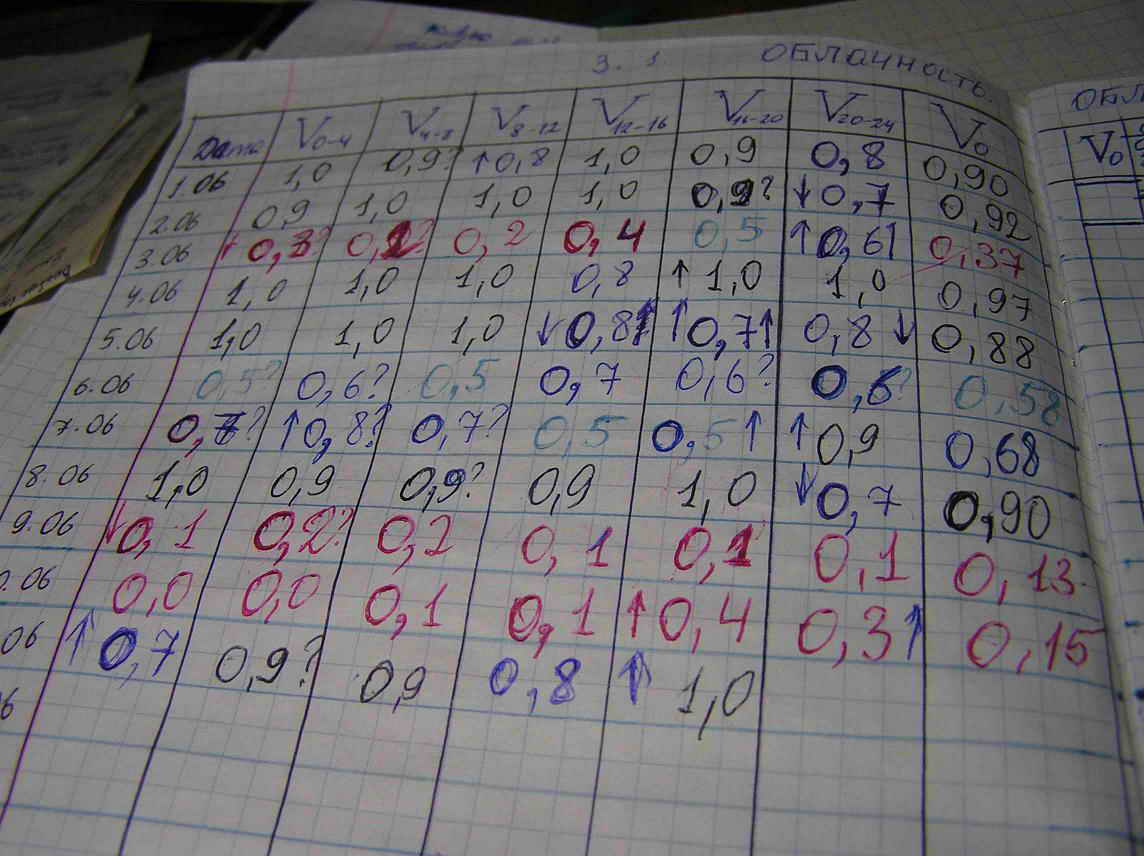 3. 1 ОБЛАЧНОСТЬ.
Дата V₀₋₄ V₄₋₈ V₈₋₁₂ V₁₂₋₁₆ V₁₆₋₂₀ V₂₀₋₂₄ V₀
1.06 1,0 0,9? ↑0,8 1,0 0,9 0,8 0,90
2.06 0,9 1,0 1,0 1,0 0,9? ↓0,7 0,92
3.06 ↑0,3? 0,2? 0,2 0,4 0,5 ↑0,6↑ 0,37
4.06 1,0 1,0 1,0 0,8 ↑1,0 1,0 0,97
5.06 1,0 1,0 1,0 ↓0,8↑ ↑0,7↑ 0,8↓ 0,88
6.06 0,5? 0,6? 0,5 0,7 0,6? 0,6? 0,58
7.06 0,7? ↑0,8? 0,7? 0,5 0,5↑ ↑0,9 0,68
8.06 1,0 0,9 0,9? 0,9 1,0 ↓0,7 0,90
9.06 ↓0,1 0,2? 0,2 0,1 0,1 0,1 0,13
0.06 0,0 0,0 0,1 0,1 ↑0,4 0,3↑ 0,15
06 ↑0,7 0,9? 0,9 0,8 ↑1,0
6
ОБЛ
V₀